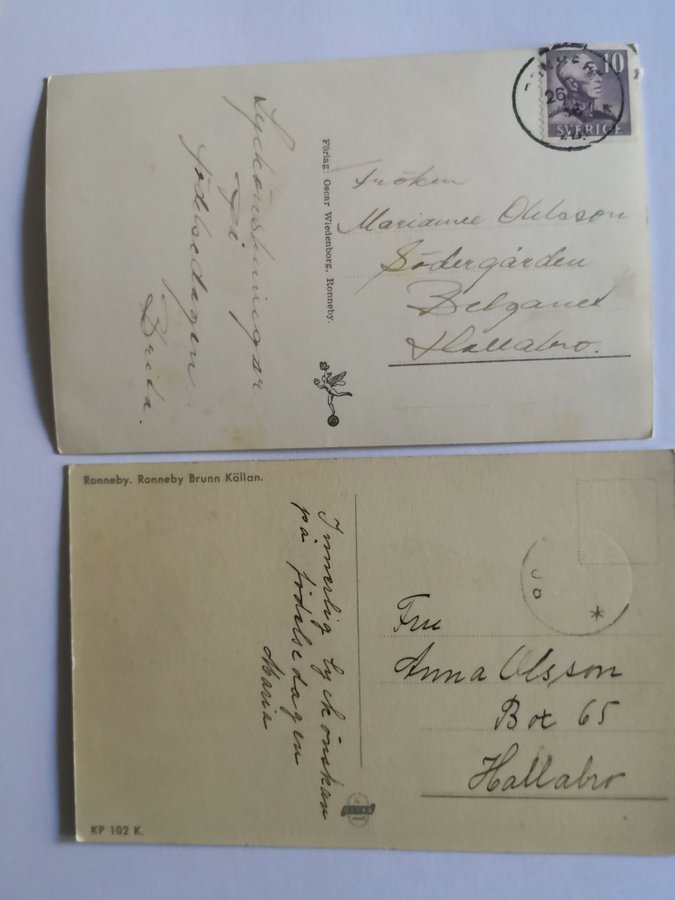 Lyckönskningar
på
födelsedagen
Brita.
Förlag: Oscar Wiedenborg, Ronneby.
10
26
SVERIGE
Fröken
Marianne Ohlsson
Södergården
Belganet
Hallabro.
Ronneby. Ronneby Brunn Källan.
Innerlig Lyckönskan
på födelsedagen
Maria
Fru
Anna Olsson
Box 65
Hallabro
KP 102 K.